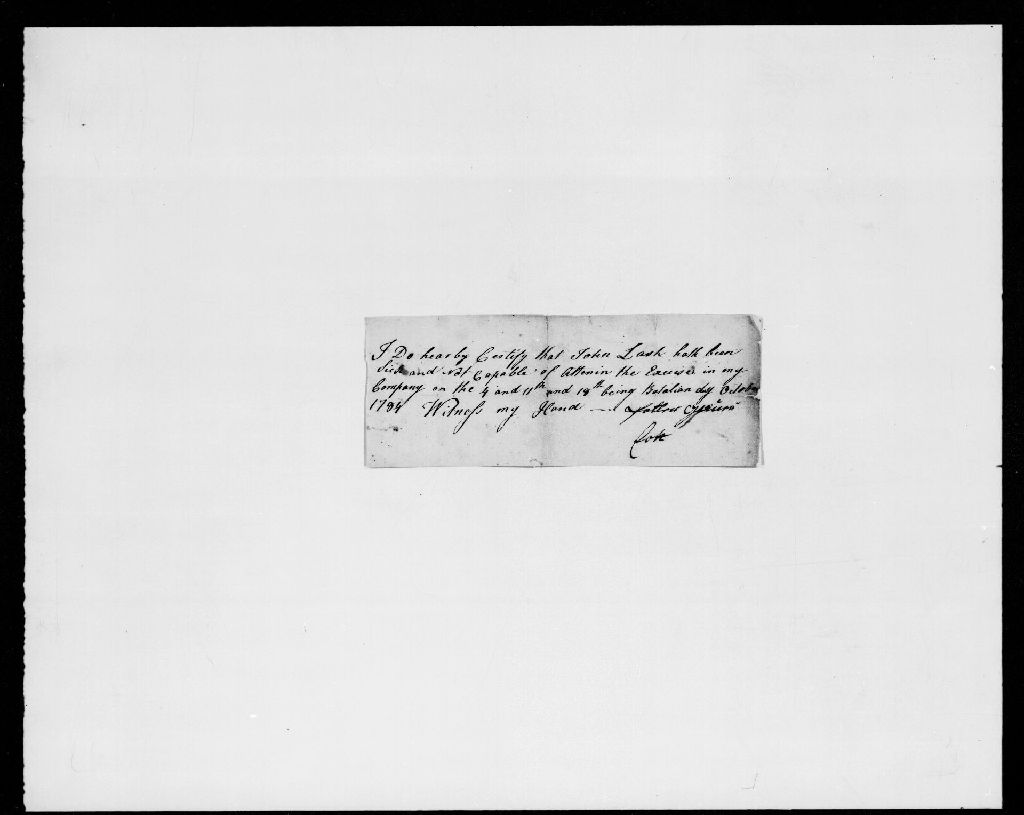 I Do hearby Certify that John Lash hath been
Sick and Not Capable of Attenin the Exercise in my
Company on the 4 and 11th and 18th being Batalian day October
1784 Witness my Hand